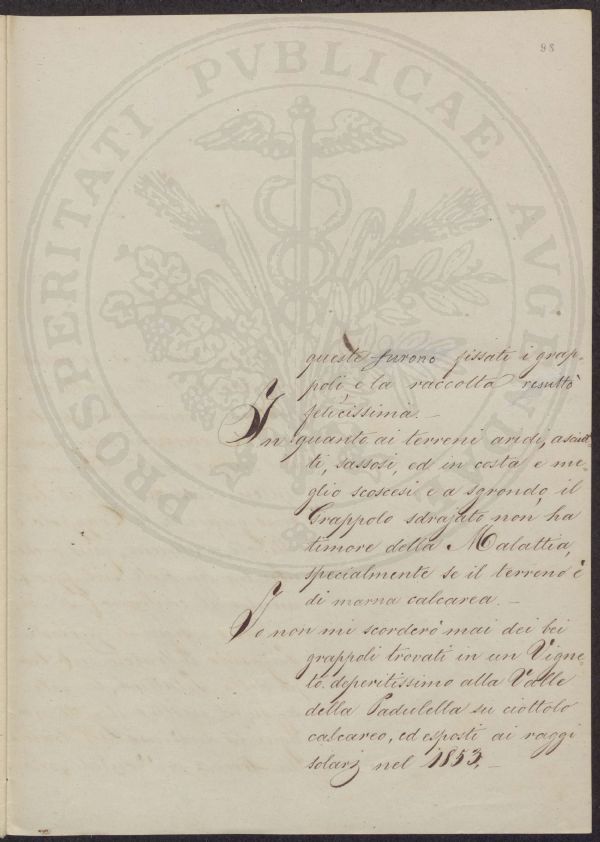 98
PROSPERITATI PVBLICAE AVGENDAE
queste furono fissati i grap-
poli, e la raccolta resultò
felicissima. _
In quanto ai terreni aridi, asciut-
ti, sassosi, ed in costa e me-
glio scoscesi e a sgrondo, il
Grappolo sdrajato non ha
timore della Malattia,
specialmente se il terreno è
di marna calcarea. _
Io non mi scorderò mai dei bei
grappoli trovati in un Vigne-
to deperitissimo alla Valle
della Paduletta su ciottolo
calcareo, ed esposti ai raggi
solari nel 1853. _